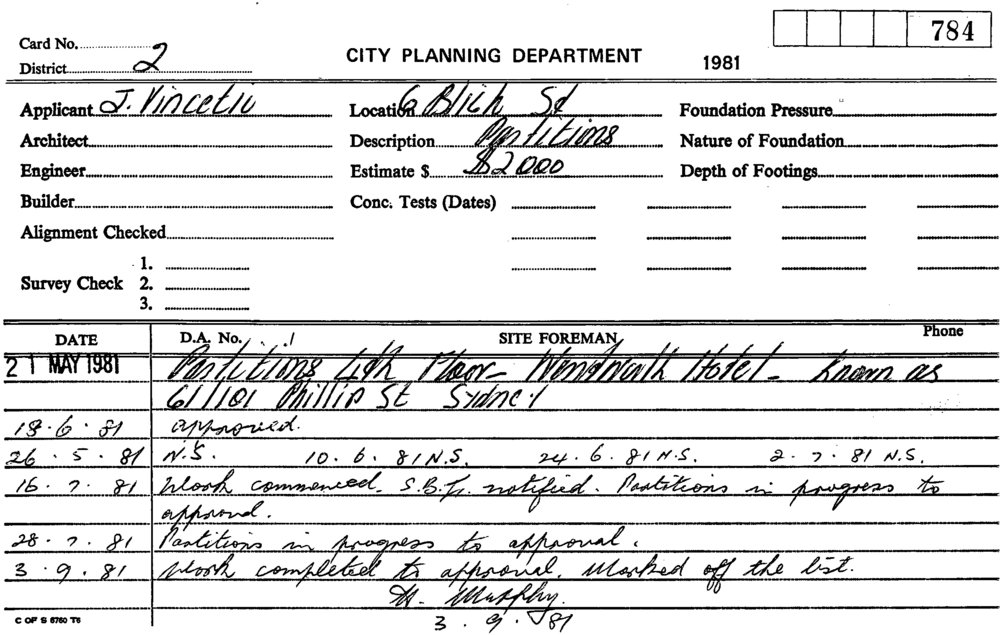 784
Card No.
District 2
CITY PLANNING DEPARTMENT
1981
Applicant J. Vincetic
Location 6 Bligh St
Foundation Pressure
Architect
Description Partitions
Nature of Foundation
Engineer
Estimate $ $2000
Depth of Footings
Builder
Conc. Tests (Dates)
Alignment Checked
Survey Check
1.
2.
3.
DATE
D.A. No.
SITE FOREMAN
Phone
21 MAY 1981 Partitions 4th Floor - Wentworth Hotel - known as
61/101 Phillip St Sydney
18.6.81 approved.
26.5.81 N.S. 10.6.81 N.S. 24.6.81 N.S. 2.7.81 N.S.
16.7.81 Work commenced. notified. Partitions in progress to
approval.
28.7.81 Partitions in progress to approval.
3.9.81 Work completed to approval. Marked off the list.
Murphy.
3.9.81
C OF S 6760 T6